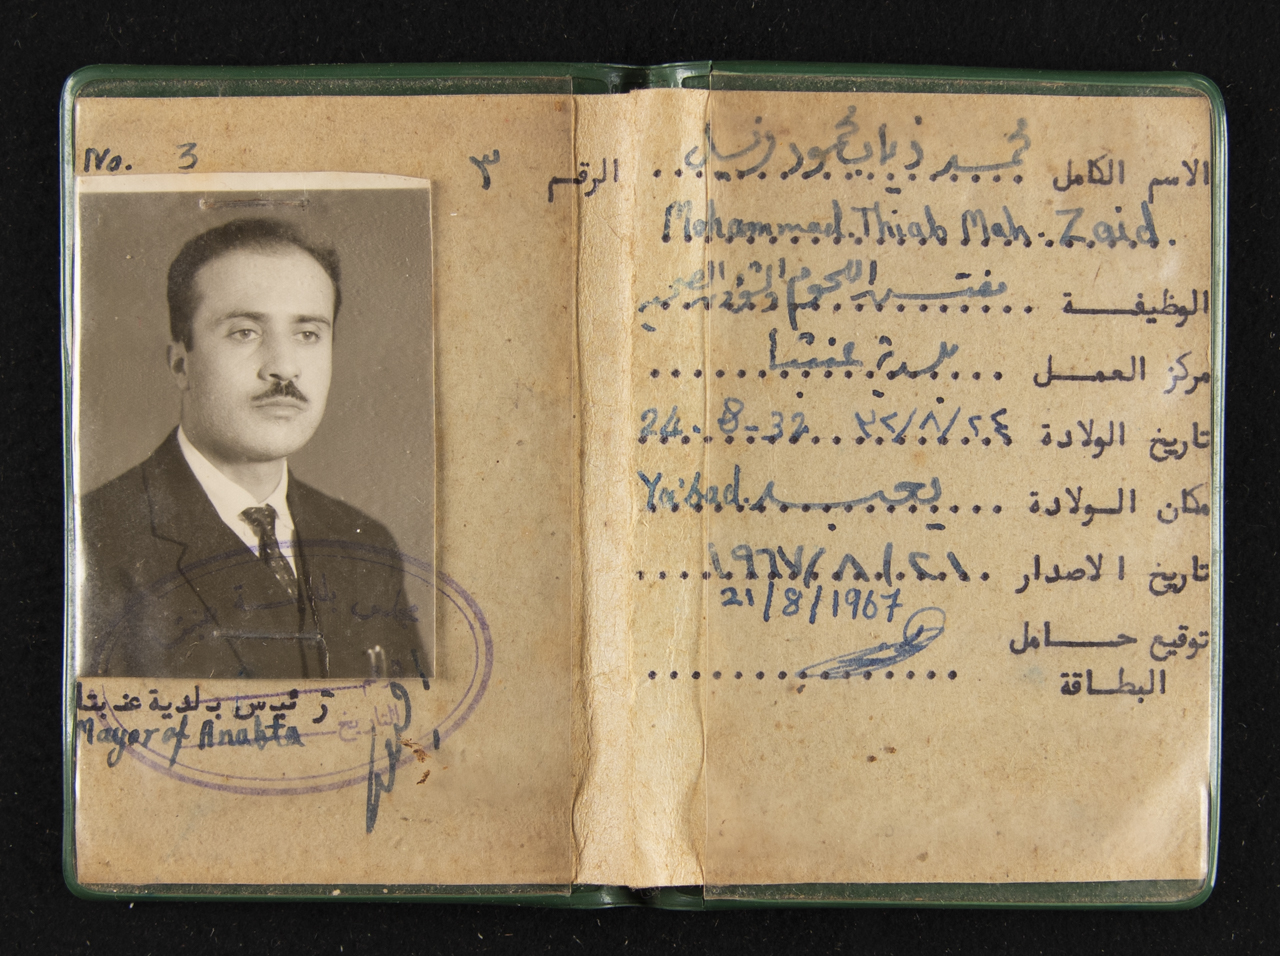 No. 3
الرقم ٣
رئيس بلدية عنبتا
Mayor of Anabta
التاريخ
الاسم الكامل محمد ذياب محمود زيد
Mohammad Thiab Mah. Zaid.
الوظيفة مفتش اللحوم
مركز العمل بلدية عنبتا
تاريخ الولادة ٣٢/٨/٢٤ 24-8-32
مكان الولادة يعبد Ya'bad
تاريخ الاصدار ١٩٦٧/٨/٢١
21/8/1967
توقيع حامل
البطاقة